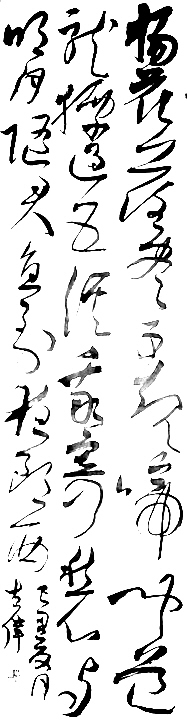 楊花落盡子規啼聞道
龍標過五溪我寄愁心與
明月隨君直到夜郎西